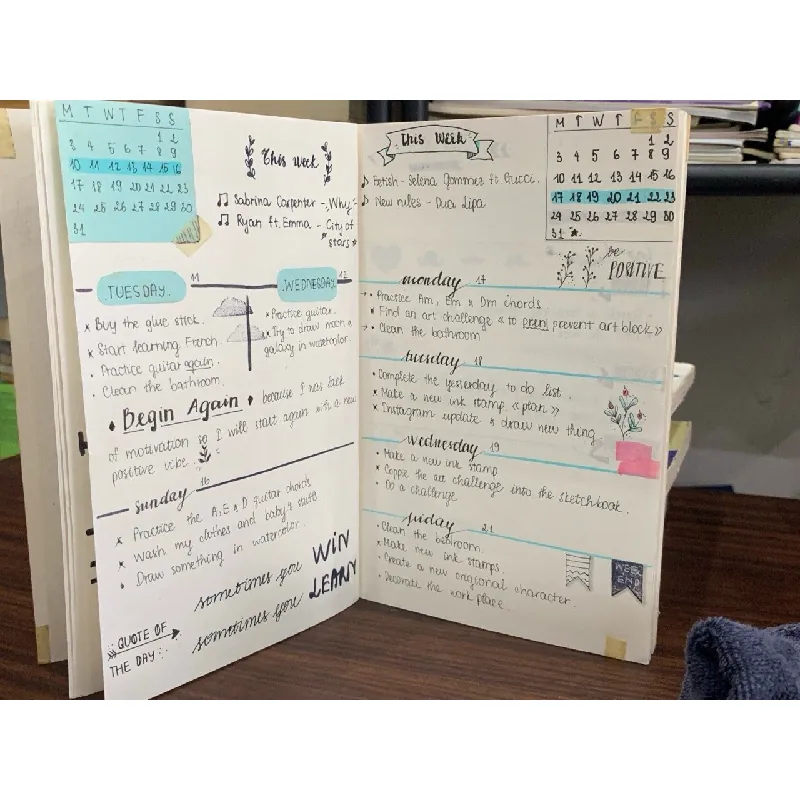 M T W T F S S
1 2
3 4 5 6 7 8 9
10 11 12 13 14 15 16
17 18 19 20 21 22 23
24 25 26 27 28 29 30
31
This week
♫ Sabrina Carpenter - Why
♫ Ryan ft. Emma - City of
* stars *
TUESDAY. 11
x Buy the glue stick.
x Start learning French.
x Practice guitar again.
• Clean the bathroom.
WEDNESDAY 12
x Practice guitar.
x Try to draw moon &
galaxy in watercolor.
• Begin Again • because I was lack
of motivation so I will start again with a new
positive vibe.
Sunday 16
x Practice the A, E & D guitar chords
x Wash my clothes and baby's stuff
• Draw something in watercolor.
sometimes you WIN
sometimes you LEARN
QUOTE OF
THE DAY
This Week
♪ Fetish - Selena Gommez ft. Gucci.
♪ New rules - Dua Lipa
M T W T F S S
1 2
3 4 5 6 7 8 9
10 11 12 13 14 15 16
17 18 19 20 21 22 23
24 25 26 27 28 29 30
31
be
POSITIVE
monday 17
• Practice Am, Em & Dm chords
x Find an art challenge « to prevent art block »
• Clean the bathroom
tuesday 18
• Complete the yesterday to do list.
x Make a new ink stamp « plan »
x Instagram update & draw new thing.
wednesday 19
• Make a new ink stamp
x the art challenge into the sketchbook.
• Do a challenge
friday 21
• Clean the bedroom.
x Make new ink stamps.
• Create a new origional character.
• Decorate the work place.
WEEK
END